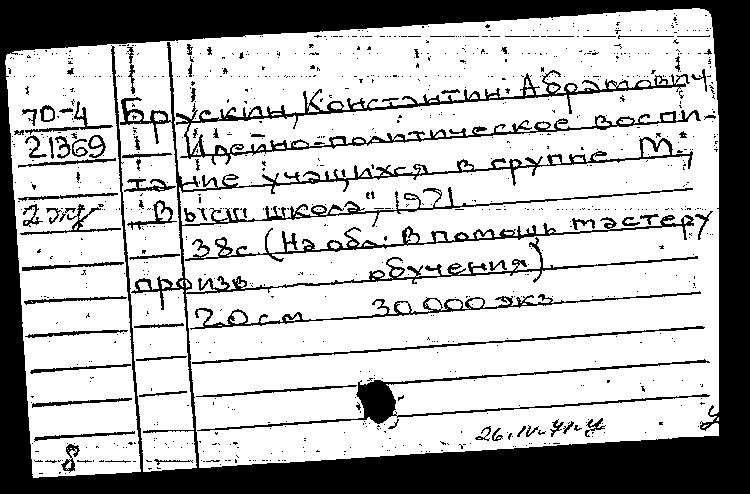 70-4 Брускин, Константин Абрамович
21369 Идейно-политическое воспи-
тание учащихся в группе. М.,
2 эк „Высш школа", 1971.
38с (На обл.: В помощь мастеру
произв обучения).
20 см 30.000 экз
8